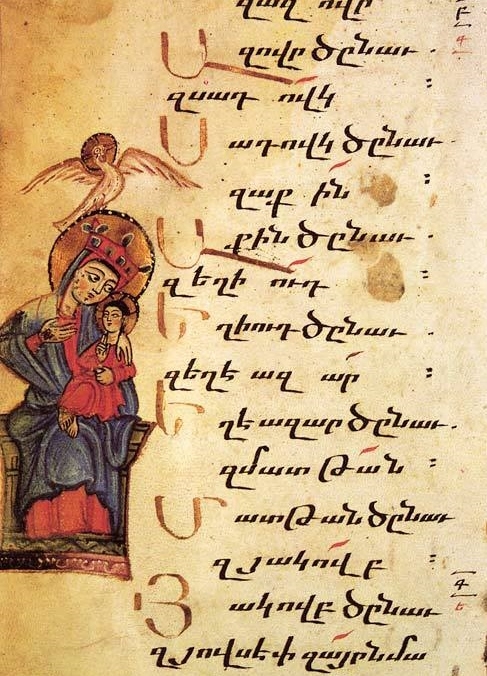 զազ ովր
Ազովր ծընաւ.
զսադ ովկ :
Սադովկ ծընաւ.
զաք ին :
Աքին ծընաւ.
զեղի ուդ :
Եղիուդ ծընաւ.
զեղե ազ ար :
Եղեազար ծընաւ.
զմատթան :
Մատթան ծընաւ
զյակովբ :
Յակովբ ծընաւ
զյովսեփ զայրն մա